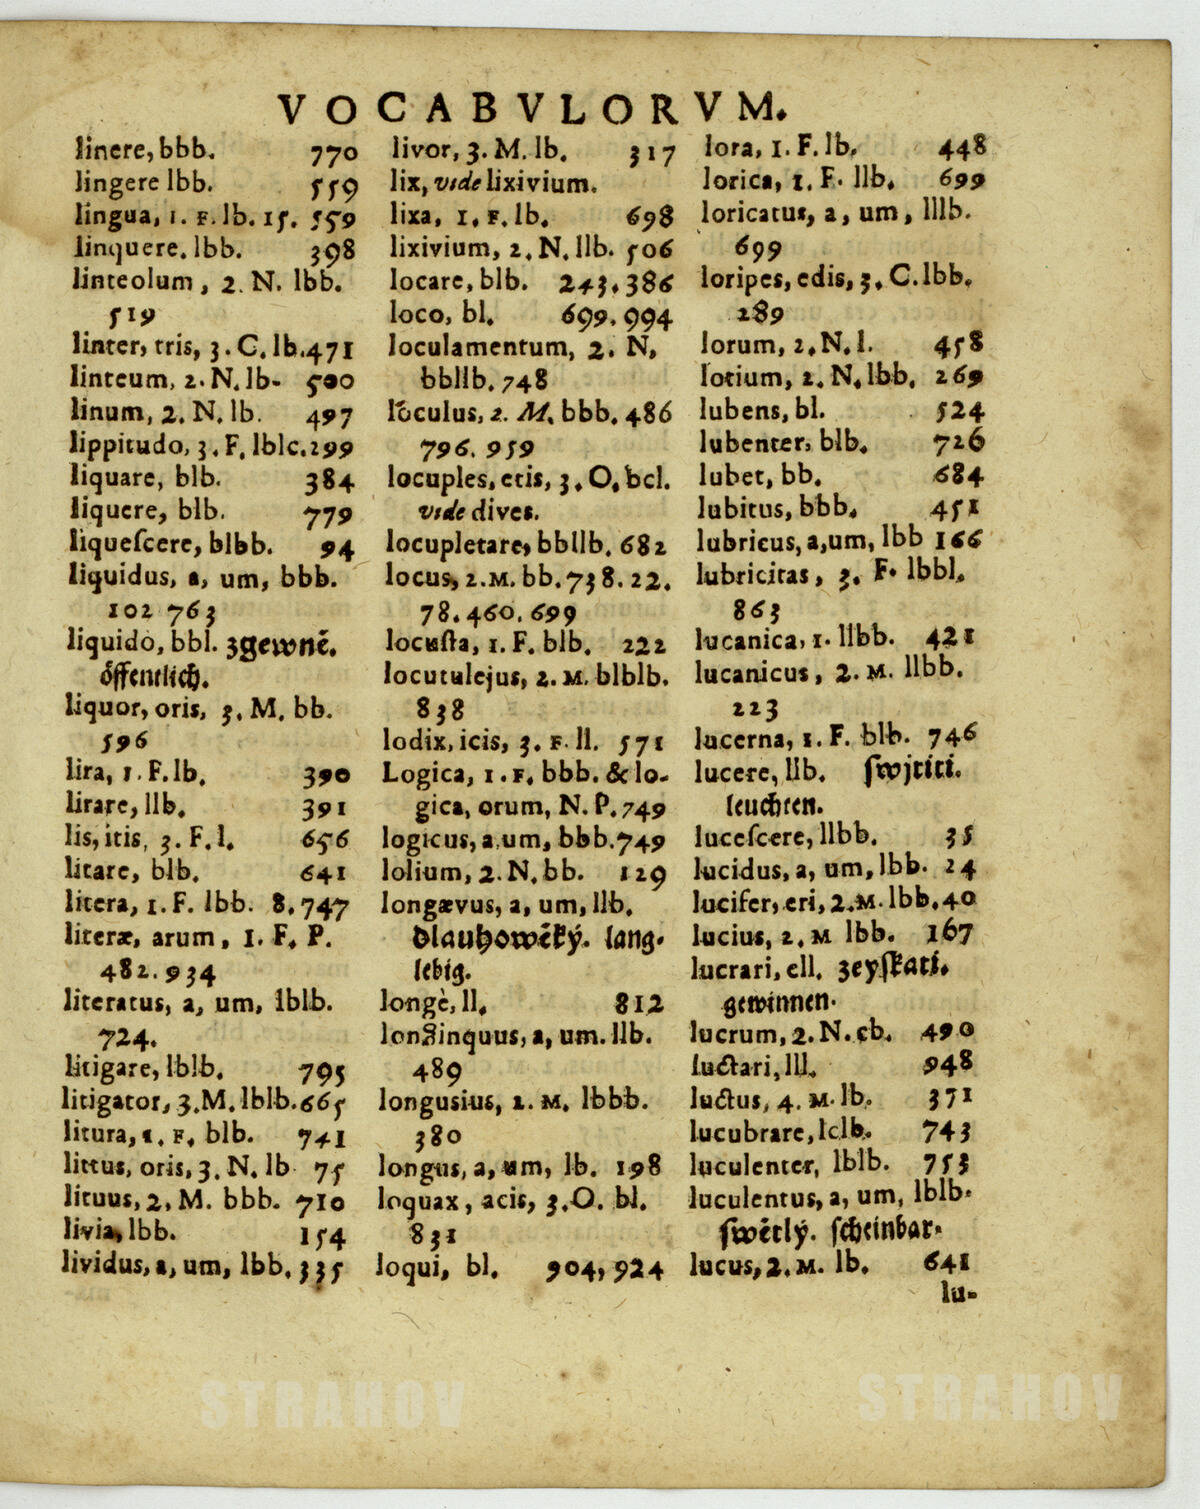 VOCABVLORVM.
linere, bbb. 770
lingere lbb. 559
lingua, 1. F. lb. 15. 559
linquere, lbb. 398
linteolum, 2. N. lbb.
519
linter, tris, 3. C. lb. 471
linteum, 2. N. lb. 500
linum, 2. N. lb. 497
lippitudo, 3. F. lblc. 299
liquare, blb. 384
liquere, blb. 779
liqueſcere, blbb. 94
liquidus, a, um, bbb.
102 763
liquidò, bbl. zgewně.
öffentlich.
liquor, oris, 3. M. bb.
596
lira, 1. F. lb. 390
lirare, llb. 391
lis, itis, 3. F. l. 656
litare, blb. 641
litera, 1. F. lbb. 8. 747
literæ, arum, 1. F. P.
482. 934
literatus, a, um, lblb.
724.
litigare, lblb. 795
litigator, 3. M. lblb. 665
litura, 1. F. blb. 741
littus, oris, 3. N. lb 75
lituus, 2. M. bbb. 710
livia, lbb. 154
lividus, a, um, lbb. 335
livor, 3. M. lb. 317
lix, vide lixivium.
lixa, 1. F. lb. 698
lixivium, 2. N. llb. 506
locare, blb. 243. 386
loco, bl. 699. 994
loculamentum, 2. N.
bbllb. 748
loculus, 2. M. bbb. 486
796. 959
locuples, etis, 3. O. bcl.
vide dives.
locupletare, bbllb. 682
locus, 2. M. bb. 738. 22.
78. 460. 699
locuſta, 1. F. blb. 222
locutulejus, 2. M. blblb.
838
lodix, icis, 3. F. ll. 571
Logica, 1. F. bbb. & lo-
gica, orum, N. P. 749
logicus, a, um, bbb. 749
lolium, 2. N. bb. 129
longævus, a, um, llb.
dlauhowěký. lang-
lebig.
longè, ll. 812
longinquus, a, um. llb.
489
longusius, 2. M. lbbb.
380
longus, a, um, lb. 198
loquax, acis, 3. O. bl.
831
loqui, bl. 904, 924
lora, 1. F. lb. 448
lorica, 1. F. llb. 699
loricatus, a, um, lllb.
699
loripes, edis, 3. C. lbb.
289
lorum, 2. N. l. 458
lotium, 2. N. lbb. 269
lubens, bl. 524
lubenter, blb. 726
lubet, bb. 684
lubitus, bbb. 451
lubricus, a, um, lbb 166
lubricitas, 3. F. lbbl.
863
lucanica, 1. llbb. 421
lucanicus, 2. M. llbb.
223
lucerna, 1. F. blb. 746
lucere, llb. ſwjtiti.
leuchten.
luceſcere, llbb. 35
lucidus, a, um, lbb. 24
lucifer, eri, 2. M. lbb. 40
lucius, 2. M lbb. 167
lucrari, cll. zeyſkati.
gewinnen.
lucrum, 2. N. cb. 490
luctari, lll. 948
luctus, 4. M. lb. 371
lucubrare, lclb. 743
luculenter, lblb. 753
luculentus, a, um, lblb.
ſwětlý. ſcheinbar.
lucus, 2. M. lb. 641
lu-
STRAHOV STRAHOV